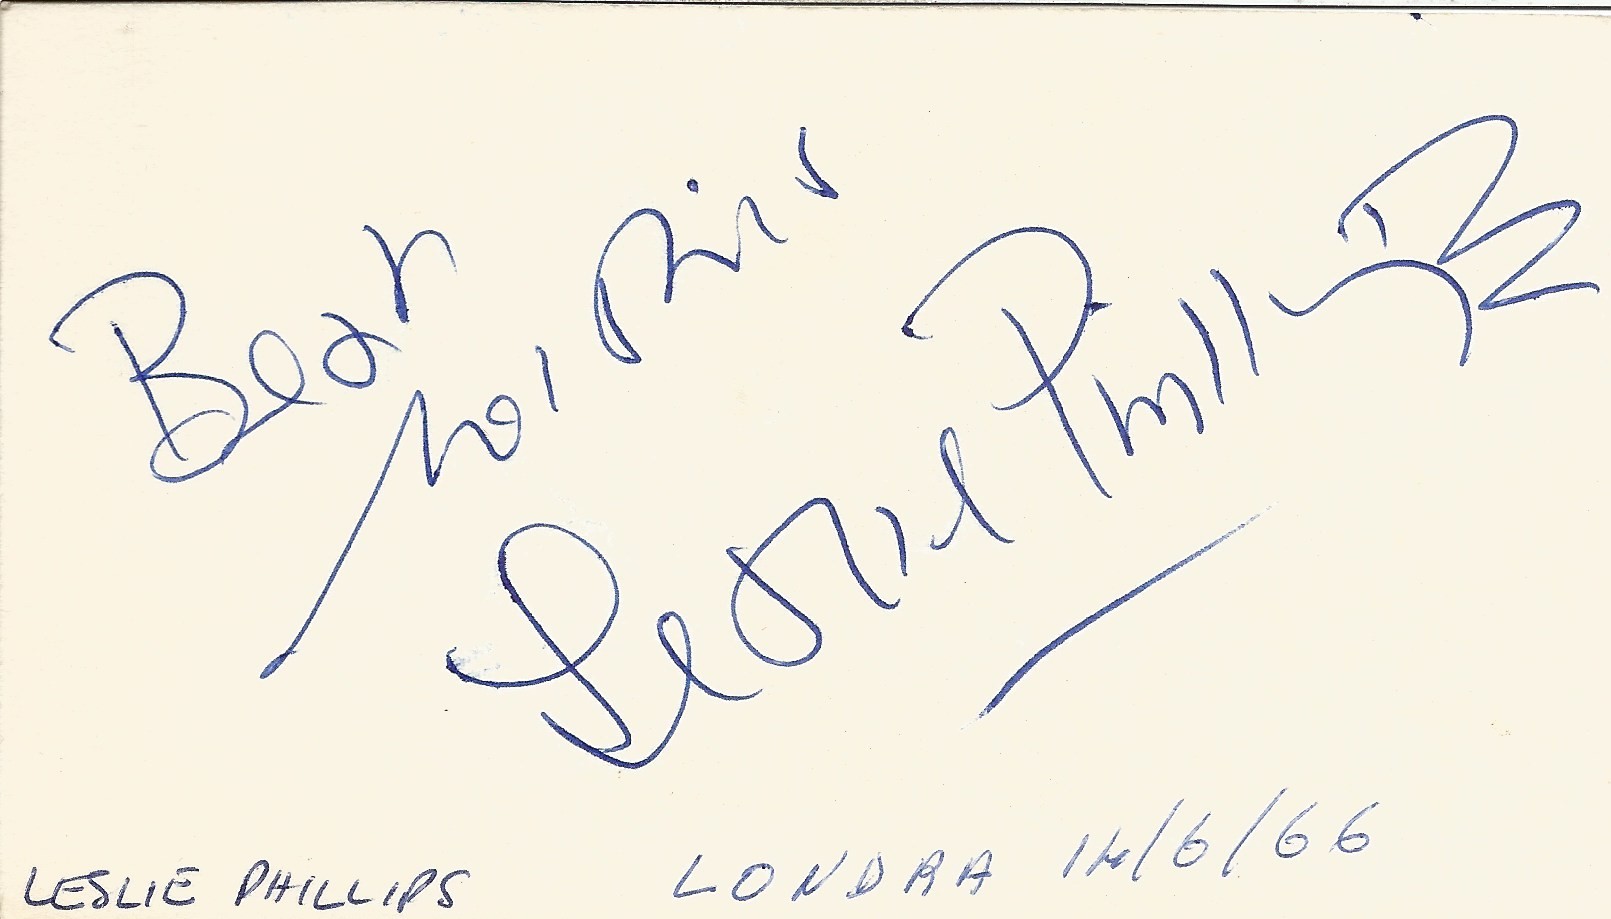 Best
wishes
Leslie Phillips
LESLIE PHILLIPS LONDRA 14/6/66